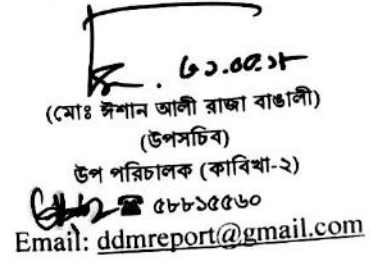 ৩১.০৫.১৮
(মোঃ ঈশান আলী রাজা বাঙালী)
(উপসচিব)
উপ পরিচালক (কাবিখা-২)
☎ ৫৮৮১৫৫৬০
Email: ddmreport@gmail.com